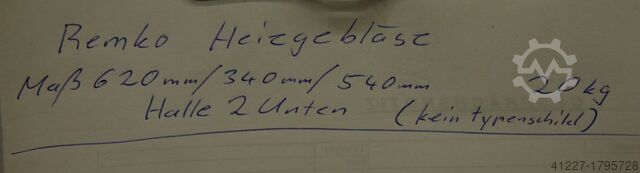 Remko Heizgebläse
Maß 620mm/340mm/540mm 20kg
Halle 2 Unten (kein typenschild)
41227-1795728